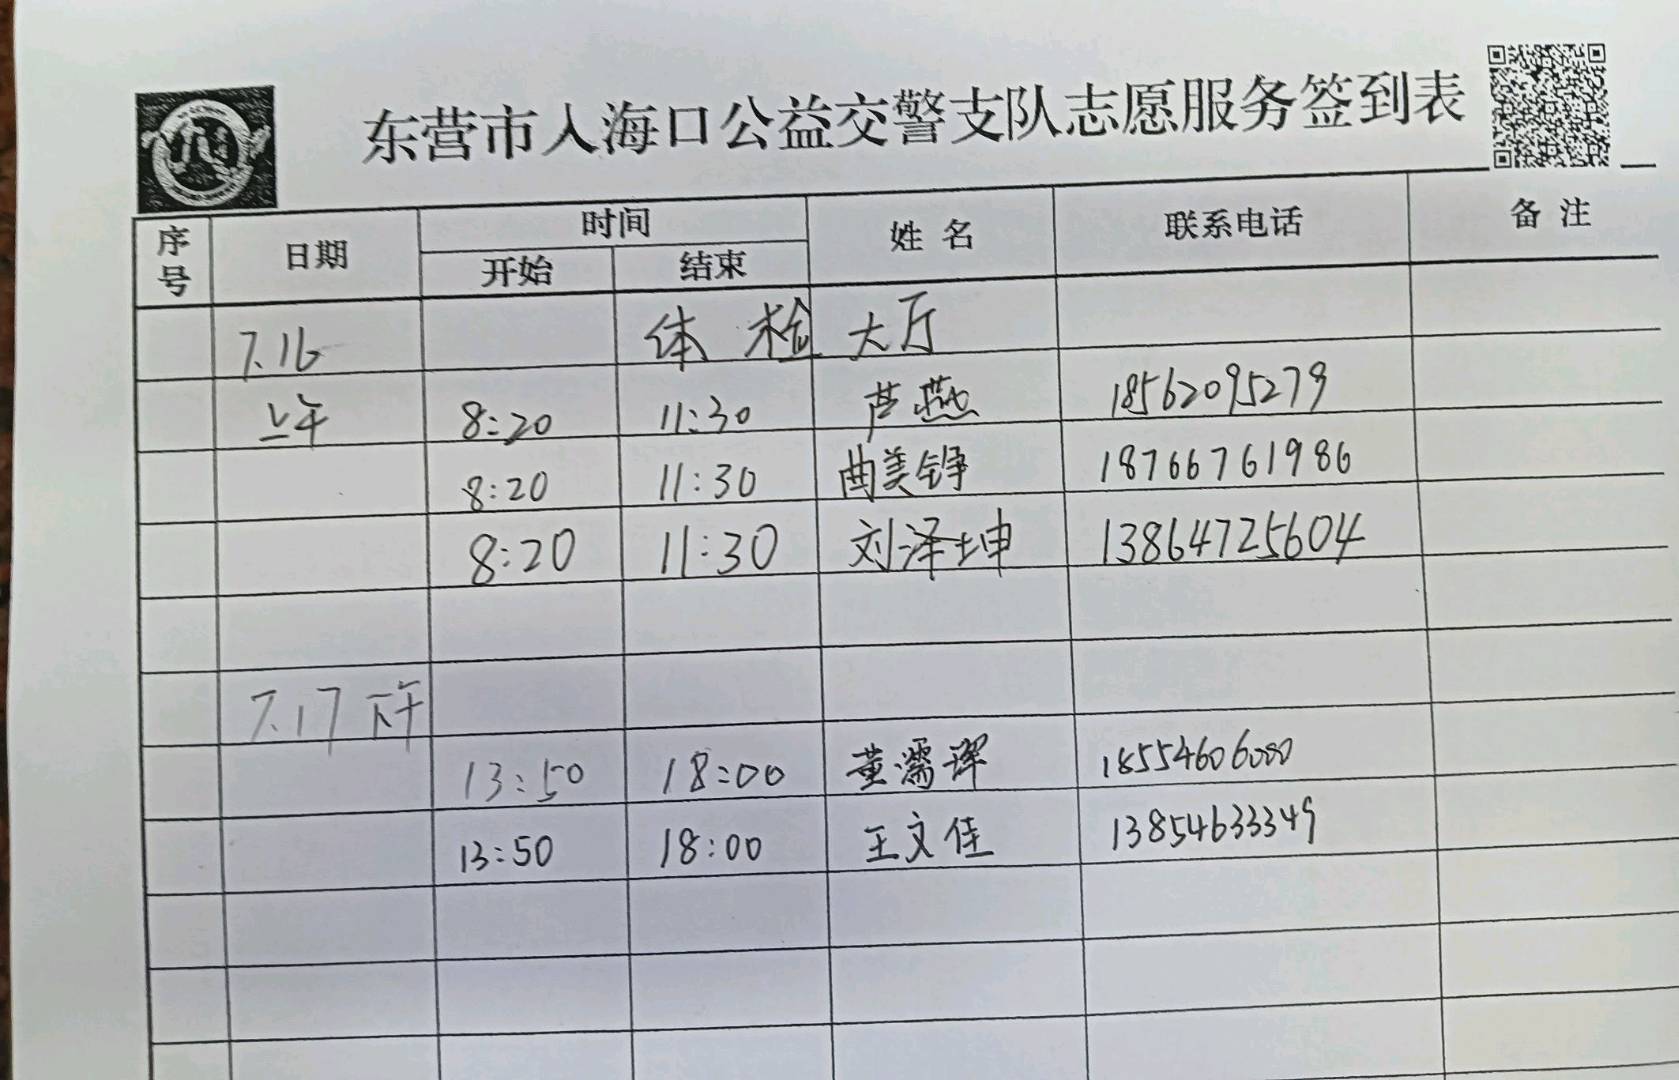 东营市入海口公益交警支队志愿服务签到表
序号 日期 时间 姓名 联系电话 备注
开始 结束
7.16 体检大厅
上午 8:20 11:30 芦燕 18562095279
8:20 11:30 曲美铮 18766761986
8:20 11:30 刘泽坤 13864725604
7.17 下午
13:50 18:00 董濡译 18554606000
13:50 18:00 王文佳 13854633349